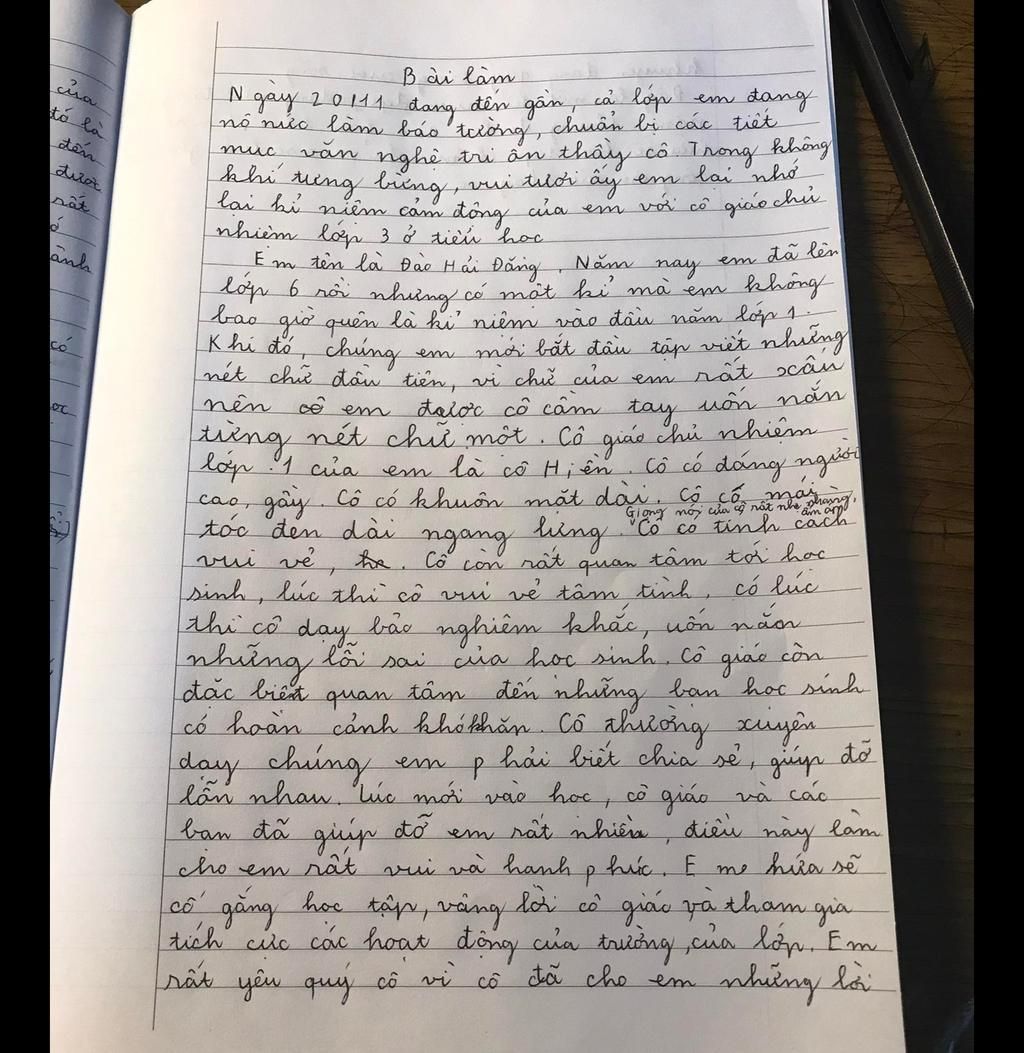 của
đó là
đến
được
rất
ảnh
có
ọc
Bài làm
Ngày 20/11 đang đến gần, cả lớp em đang
nô nức làm báo tường, chuẩn bị các tiết
mục văn nghệ tri ân thầy cô. Trong không
khí tưng bừng, vui tươi ấy em lại nhớ
lại kỉ niệm cảm động của em với cô giáo chủ
nhiệm lớp 3 ở tiểu học
Em tên là Đào Hải Đăng. Năm nay em đã lên
lớp 6 rồi nhưng có một kỉ mà em không
bao giờ quên là kỉ niệm vào đầu năm lớp 1.
Khi đó, chúng em mới bắt đầu tập viết những
nét chữ đầu tiên, vì chữ của em rất xấu
nên em được cô cầm tay uốn nắn
từng nét chữ một. Cô giáo chủ nhiệm
lớp 1 của em là cô Hiền. Cô có dáng người
cao, gầy. Cô có khuôn mặt dài. Cô có mái
Giọng nói của cô rất nhẹ nhàng, ấm áp
tóc đen dài ngang lưng. Cô có tính cách
vui vẻ, . Cô còn rất quan tâm tới học
sinh, lúc thì cô vui vẻ tâm tình, có lúc
thì cô dạy bảo nghiêm khắc, uốn nắn
những lỗi sai của học sinh. Cô giáo còn
đặc biệt quan tâm đến những bạn học sinh
có hoàn cảnh khó khăn. Cô thường xuyên
dạy chúng em phải biết chia sẻ, giúp đỡ
lẫn nhau. Lúc mới vào học, cô giáo và các
bạn đã giúp đỡ em rất nhiều, điều này làm
cho em rất vui và hạnh phúc. Em hứa sẽ
cố gắng học tập, vâng lời cô giáo và tham gia
tích cực các hoạt động của trường, của lớp. Em
rất yêu quý cô vì cô đã cho em những lời